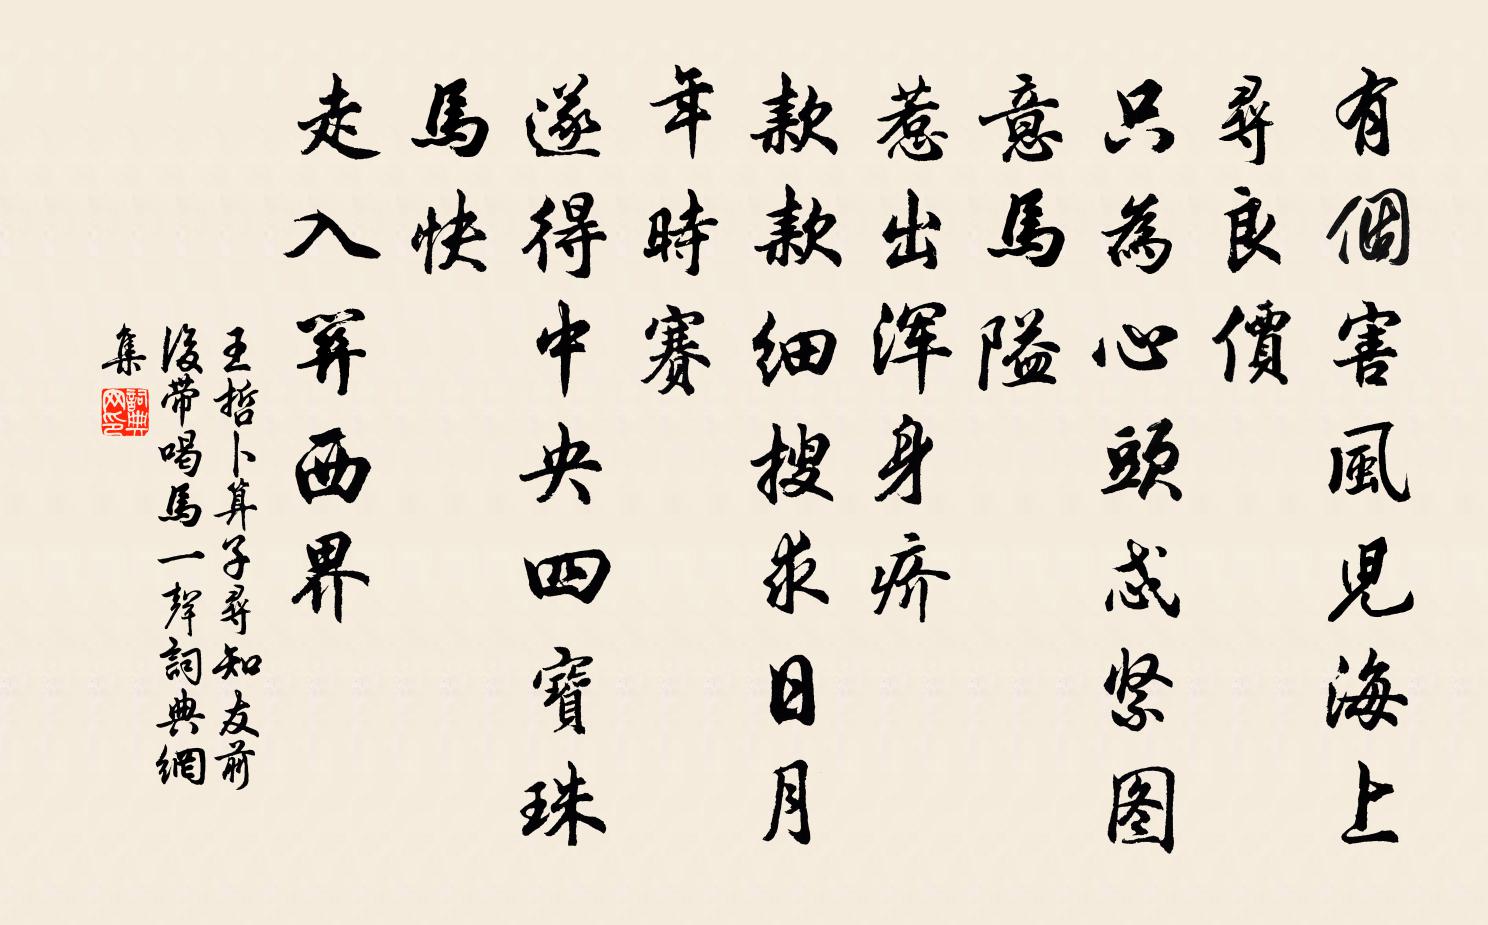 有個害風兒海上
尋良價
只為心頭忒紧图
意馬隘
惹出浑身疥
款款細搜求日月
年時賽
遂得中央四寶珠
馬快
走入西界
王哲卜算子尋知友前
後带喝馬一聲詞典網
集
詞典网印